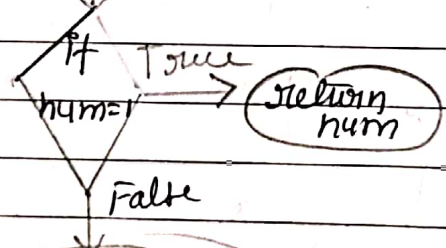 if
num=1
True
return
num
False